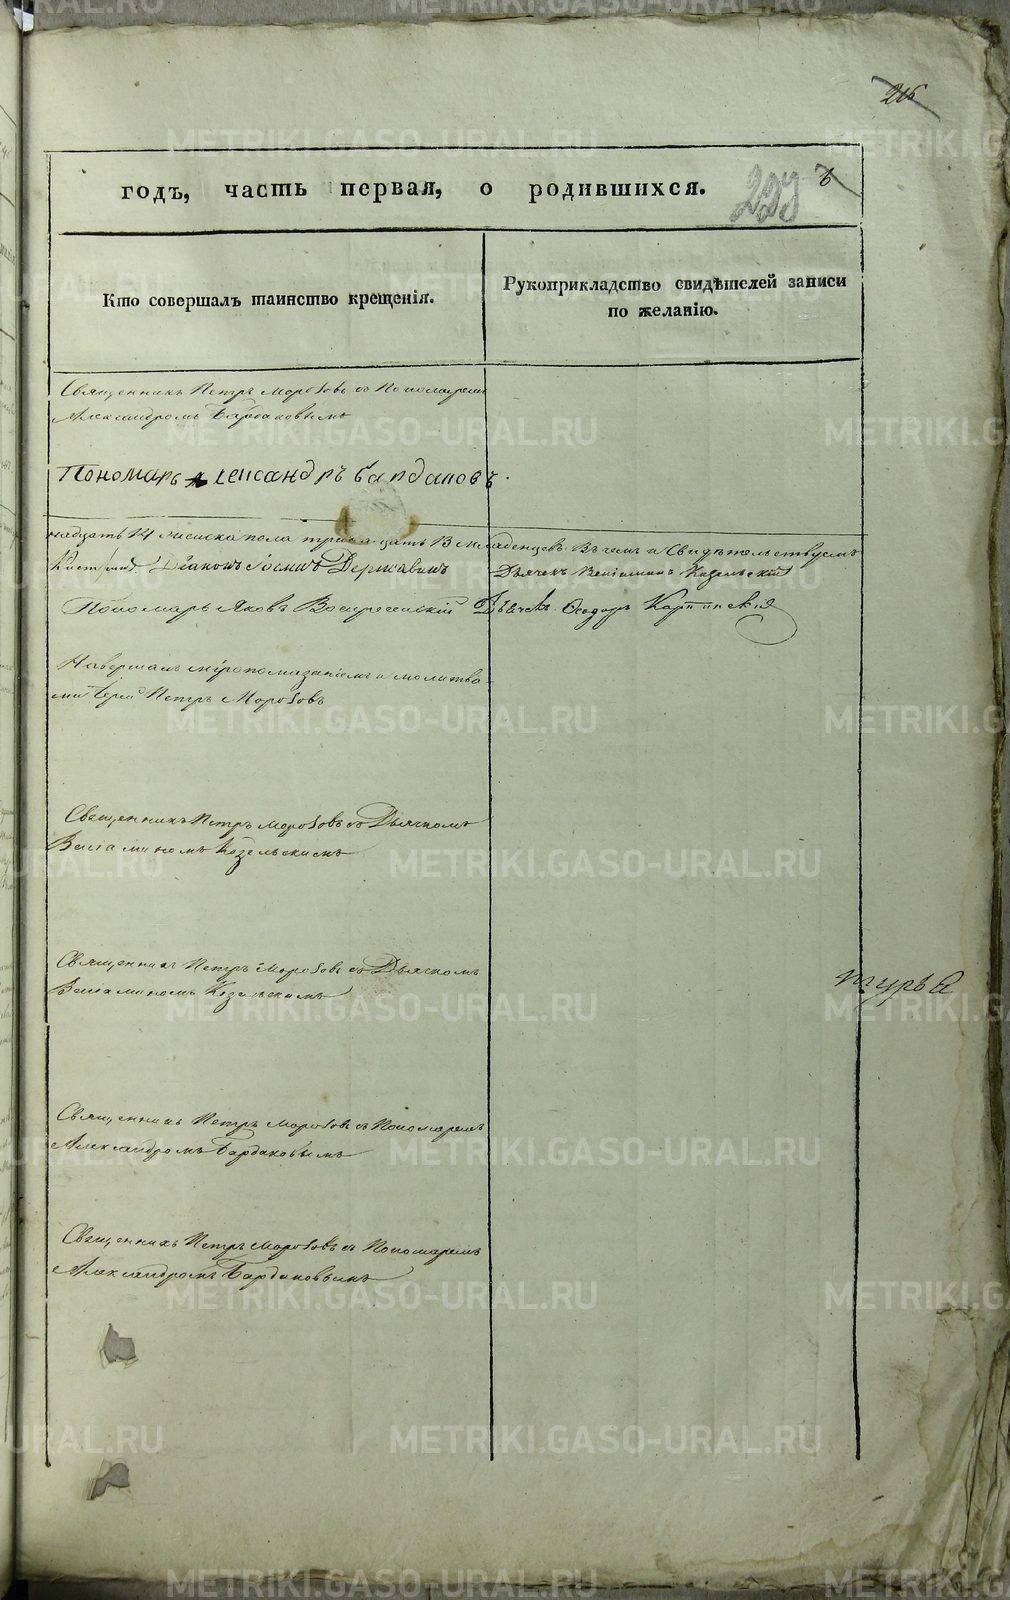 216
годъ, часть первая, о родившихся.
229
Кто совершалъ таинство крещенія.
Рукоприкладство свидѣтелей записи
по желанію.
Священникъ Петръ Морозовъ съ Пономаремъ
Александромъ Бардаковымъ
Пономарь Александръ бардаковъ.
надцать 14 женска пола тринадцать 13 младенцевъ. Въ чемъ и Свидѣтельствуемъ
Діаконъ Державинъ
Дьячекъ Веніаминъ Козельскій
Пономарь Яковъ Воскресенскій
Дьячекъ Ѳеодоръ Карпинскій
Навершалъ мѵропомазаніемъ и молитва-
ми Іерей Петръ Морозовъ
Священникъ Петръ Морозовъ съ Дьячкомъ
Веніаминомъ Козельскимъ
Священникъ Петръ Морозовъ съ Дьячкомъ
Веніаминомъ Козельскимъ
турьа
Священникъ Петръ Морозовъ съ Пономаремъ
Александромъ Бардаковымъ
Священникъ Петръ Морозовъ съ Пономаремъ
Александромъ Бардаковымъ
METRIKI.GASO-URAL.RU